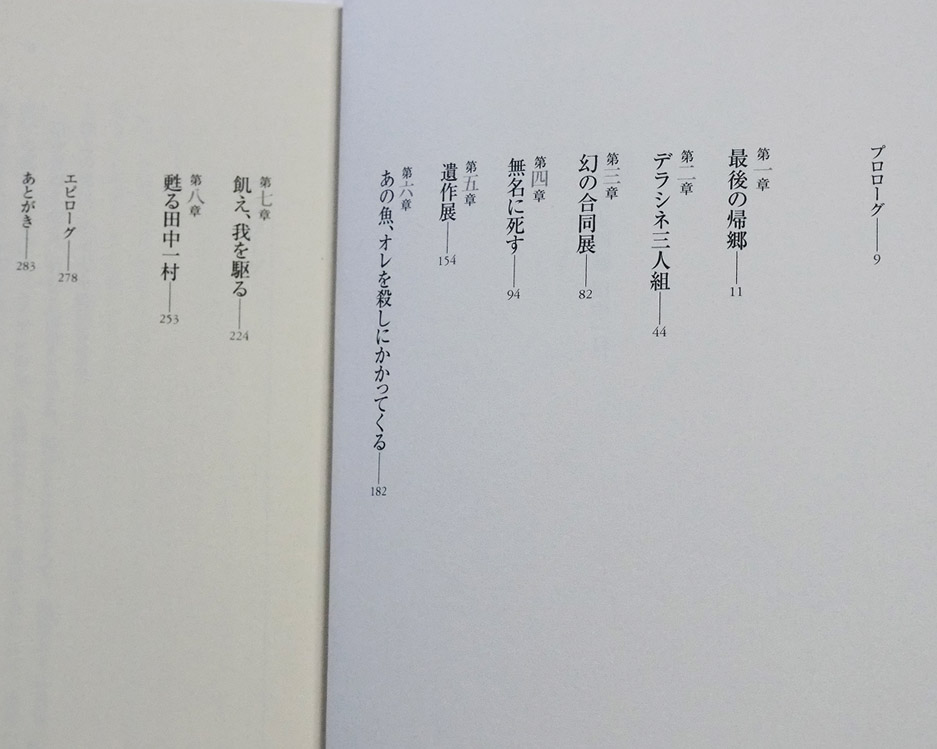 プロローグ——9
第一章
最後の帰郷——11
第二章
デラシネ三人組——44
第三章
幻の合同展——82
第四章
無名に死す——94
第五章
遺作展——154
第六章
あの魚、オレを殺しにかかってくる——182
第七章
飢え、我を駆る——224
第八章
甦る田中一村——253
エピローグ——278
あとがき——283